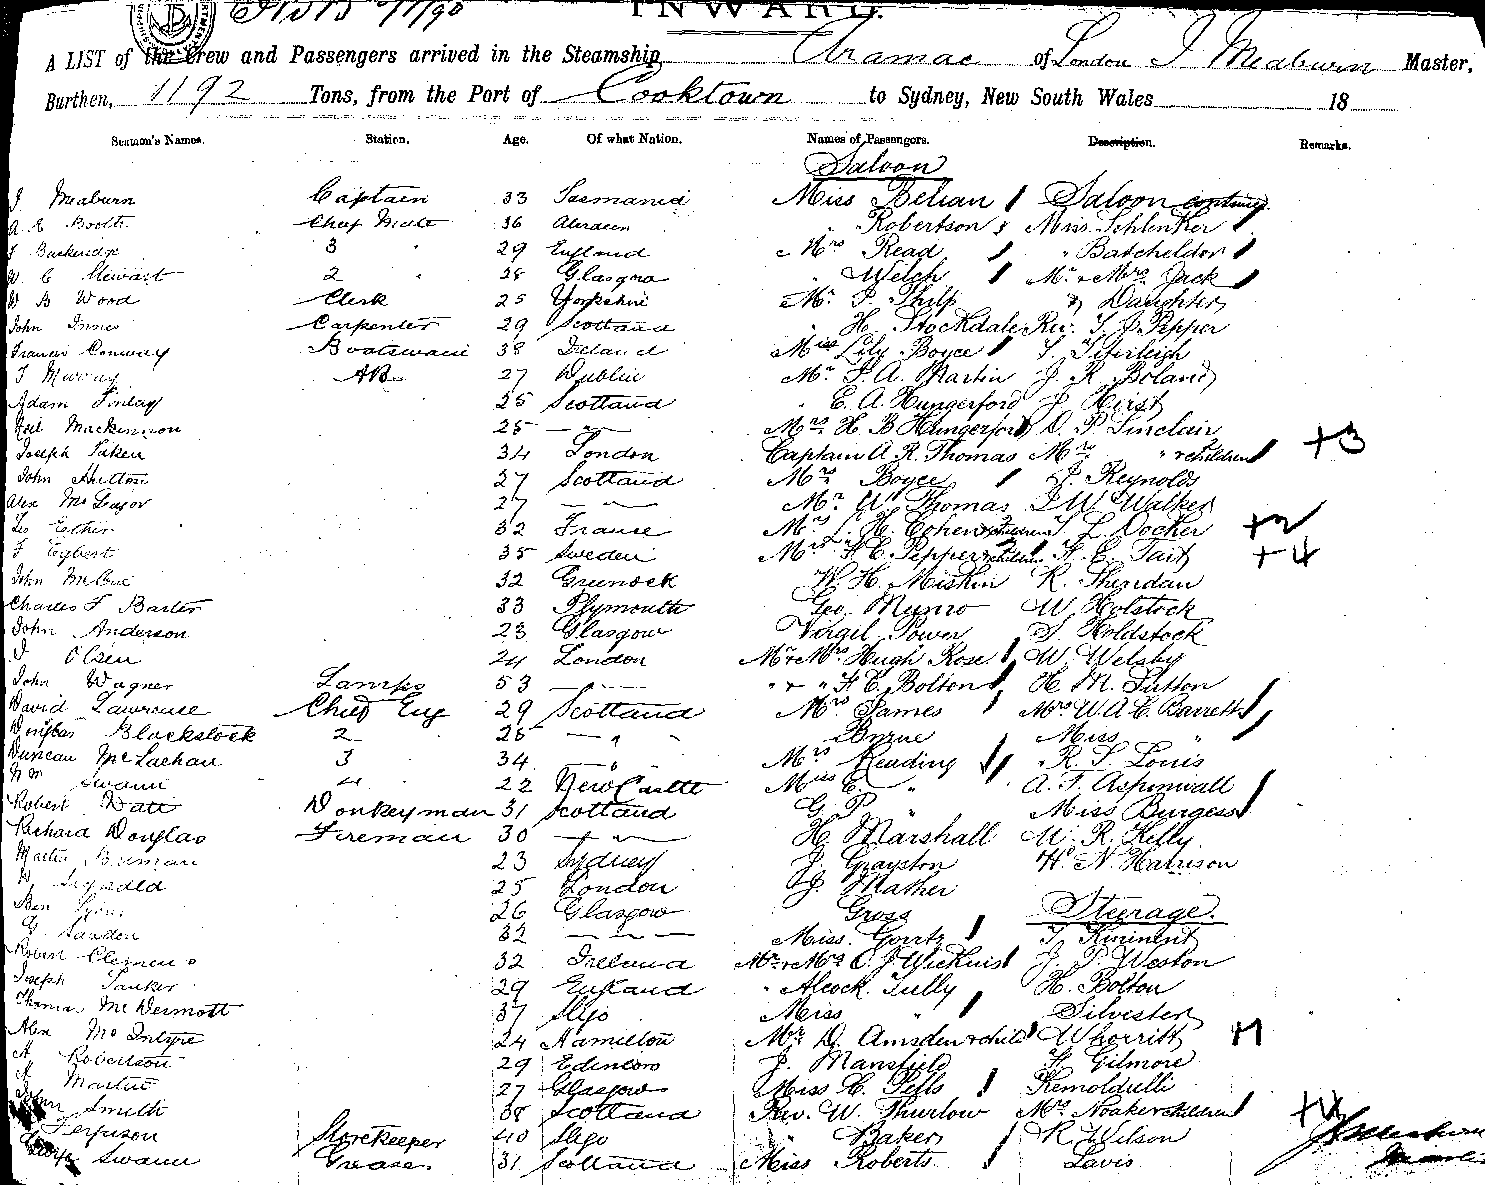 INWARD.
A LIST of the Crew and Passengers arrived in the Steamship Aramac of London J Meaburn Master,
Burthen, 1192 Tons, from the Port of Cooktown to Sydney, New South Wales 18
Seamen's Names. Station. Age. Of what Nation. Names of Passengers. Description. Remarks.
Saloon
J Meaburn Captain 33 Tasmania Miss Belian Saloon continued
A E Booth Chief Mate 36 Aberdeen " Robertson Miss Schlenker
3 " 29 England Mrs Read " Batcheldor
W C Stewart 2 " 28 Glasgow " Welch Mr & Mrs Jack
W B Wood Clerk 25 Yorkshire Mr J. Philp & Daughter
John Innes Carpenter 29 Scotland " H. Stockdale Rev. T J Pepper
Francis Conway Boatswain 38 Ireland Miss Lily Boyce
T Murray AB 27 Dublin Mr. S. A. Martin J. R. Boland
Adam Finlay 25 Scotland " E. A. Hungerford J Hirst
Neil Mackinnon 25 — " — Mrs H. B Hungerford D. P. Sinclair
Joseph 34 London Captain A. R. Thomas Mrs " & children +3
John Hutton 27 Scotland Mrs Boyce J. Reynolds
Alex 27 — " — Mr W. Thomas J W Walker
32 France Mrs L. H. Cohen & 2 children T L Docker +2
F Egbert 35 Sweden Mrs H E Pepper & children H. E. Tait +4
John McCue 32 Greenock W H. Miskin R. Sheridan
Charles F Barter 33 Plymouth Geo. Munro W Holstock
John Anderson 23 Glasgow Virgil Power S. Holdstock
Olsen 24 London Mr & Mrs Hugh Rose W. Welsby
John Wagner Lamps 53 — " — " & " H E. Bolton H. M. Sutton
David Lawrence Chief Eng 29 Scotland Mrs James Mrs W. A. E. Barrett
Douglas Blackstock 2 " 25 — " — Byrne Miss "
Duncan McLachan 3 34 — " — Mrs Reading R. S. Louis
Wm Swann 4 22 New Castle Miss E. " A. F. Aspinwall
Robert Watt Donkeyman 31 Scotland G. P. " Miss Burgess
Richard Douglas Fireman 30 — " — H. Marshall W. R. Kelly
Martin 23 Sydney J. Grayston H. N. Harrison
25 London J. Mather
Ben 26 Glasgow Gross Steerage.
32 — " — Miss.
Robert Clemens 32 Ireland Mr & Mrs C. J. J. P. Weston
Joseph 29 England " Alcock Tully H. Bolton
Thomas McDermott 37 Sligo Miss " Silvester
Alex McIntyre 24 Hamilton Mrs D. Amsden & child Whorritt +1
A Robertson 29 Edinboro J. Mansfield H. Gilmore
A Martin 27 Glasgow Miss H. Fells
John Smith 38 Scotland Rev. W. Thurlow Mrs Noaker & children +4
Ferguson Storekeeper 40 Sligo " Baker R Wilson
George Swann Greaser 31 Scotland Miss Roberts Lavis